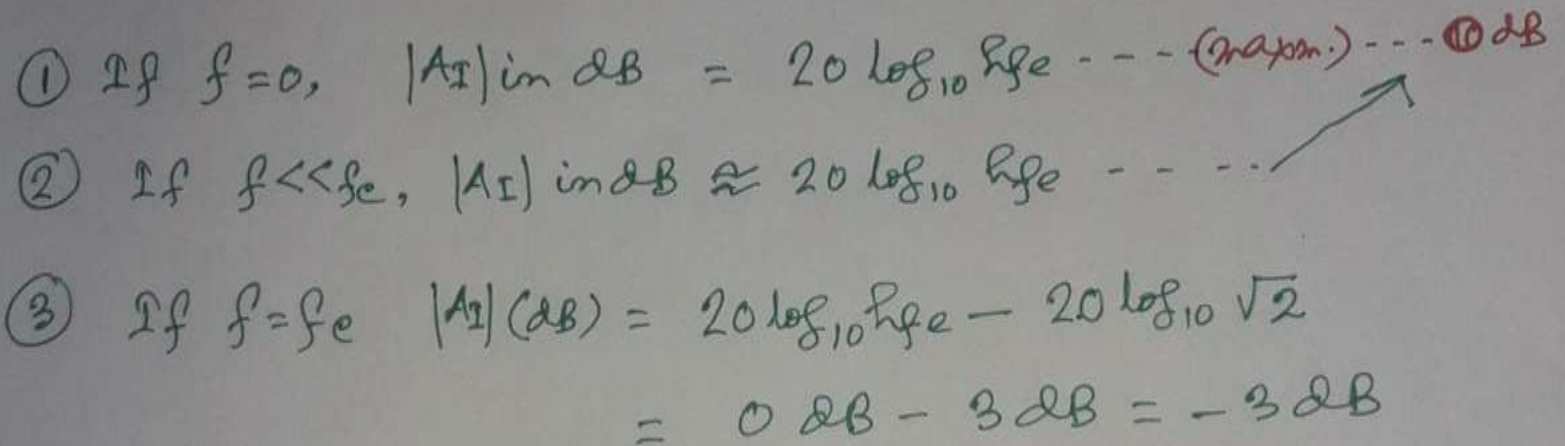 ① If f=0, |A_I| in dB = 20 log₁₀ hfe - - - (maxm.) - - - 0 dB
② If f<<fe, |A_I| in dB ≈ 20 log₁₀ hfe - - - -
③ If f=fe |A_I| (dB) = 20 log₁₀ hfe – 20 log₁₀ √2
= 0 dB – 3 dB = – 3 dB